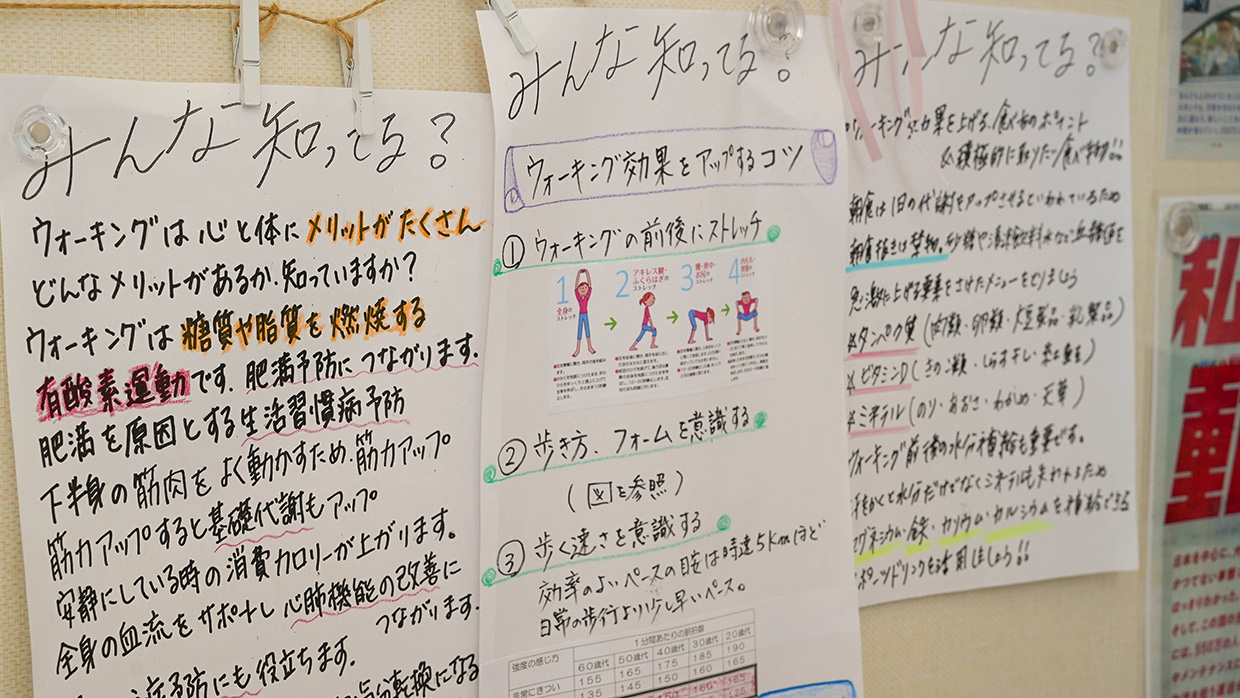 みんな知ってる?
ウォーキングは心と体にメリットがたくさん
どんなメリットがあるか、知っていますか?
ウォーキングは糖質や脂質を燃焼する
有酸素運動です。肥満予防につながります。
肥満を原因とする生活習慣病予防
下半身の筋肉をよく動かすため、筋力アップ
筋力アップすると基礎代謝もアップ
安静にしている時の消費カロリーが上がります。
全身の血流をサポートし心肺機能の改善に
つながります。
予防にも役立ちます。
転換になる
みんな知ってる?
ウォーキング効果をアップするコツ
① ウォーキングの前後にストレッチ
1 全身のストレッチ
2 アキレス腱・ふくらはぎのストレッチ
3
4
② 歩き方、フォームを意識する
(図を参照)
③ 歩く速さを意識する
効率のよいペースの目安は時速5kmほど
日常の歩行より少し早いペース。
強度の感じ方 1分間あたりの脈拍数
60歳代 50歳代 40歳代 30歳代 20歳代
非常にきつい 155 165 175 185 190
135 145 150 160 165
みんな知ってる?
ウォーキング効果を上げる、食べ物のポイント
積極的に取りたい食べ物!!
朝食は1日の代謝をアップさせるといわれているため
朝食抜きは禁物。砂糖や清涼飲料水など血糖値を
急激に上げる栄養をさけたメニューをとりましょう
*タンパク質(肉類・卵類・大豆製品・乳製品)
*ビタミンD(きのこ類・しらす干し・
*ミネラル(のり・あおさ・わかめ・天草)
ウォーキング前後の水分補給も重要です。
汗をかくと水分だけでなくミネラルも失われるため
マグネシウム・鉄・カリウム・カルシウムを補給できる
スポーツドリンクを活用しましょう!!
私
重
日本を中心に、
かつてない事態
はっきりわかった。
そして、この国の
は、550万の人
やメンテナンスに